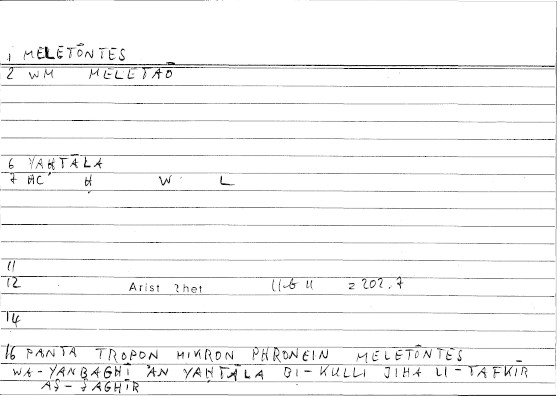 1 MELETŌNTES
2 WM MELETAŌ
6 YAḤTĀLA
7 Ḥ W L
11
12 Arist Rhet 202,7
14
16 PANTA TROPON MIKRON PHRONEIN MELETŌNTES
WA-YANBAGHĪ AN YAḤTĀLA BI-KULLI JIHA LI-TAFKĪR
AṢ-ṢAGHĪR